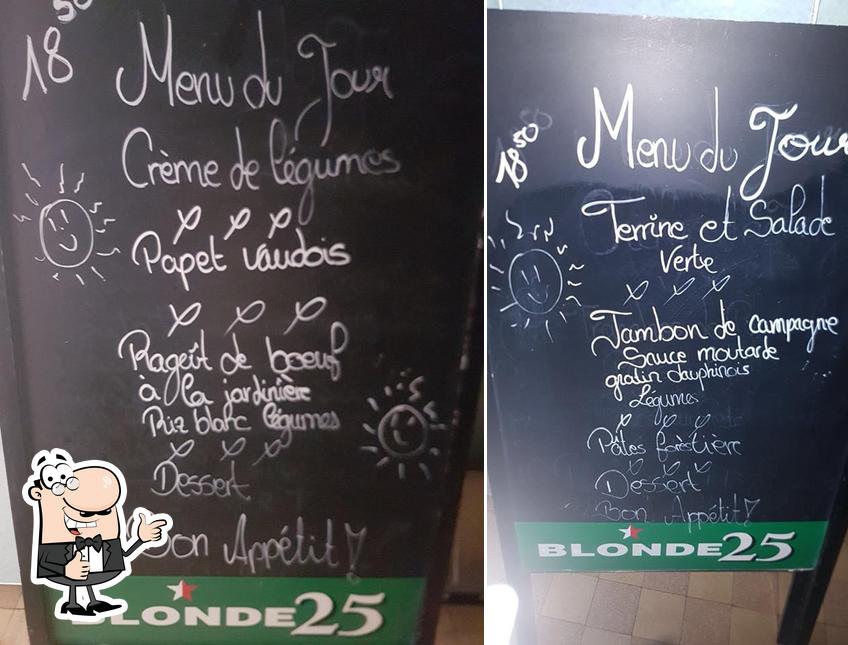 18 50
Menu du Jour
Crème de légumes
Papet vaudois
Ragoût de boeuf
à la jardinière
Riz blanc légumes
Dessert
Bon Appétit!
BLONDE 25
18 50
Menu du Jour
Terrine et Salade
Verte
Jambon de campagne
Sauce moutarde
gratin dauphinois
Légumes
Pâtes forestière
Dessert
Bon Appétit!
BLONDE 25